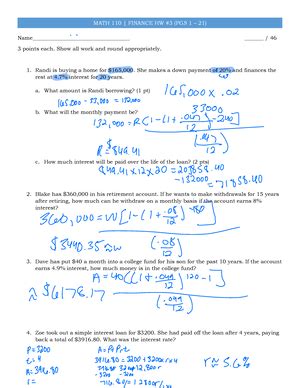 MATH 110 | FINANCE HW #3 (PGS 1 – 21)
Name
/ 46
3 points each. Show all work and round appropriately.
1. Randi is buying a home for $165,000. She makes a down payment of 20% and finances the
rest at 4.7% interest for 20 years.
a. What amount is Randi borrowing? (1 pt)
165,000 × .02
165,000 - 33,000 = 132,000
33000
b. What will the monthly payment be?
132,000 = R(1-(1+ .047/12)^-240)
(.047/12)
R = 849.41
c. How much interest will be paid over the life of the loan? (2 pts)
849.41×12×20 = 203858.40
-132000
= 71858.40
2. Blake has $360,000 in his retirement account. If he wants to make withdrawals for 15 years
after retiring, how much can be withdrawn on a monthly basis if the account earns 8%
interest?
360,000 = W[1-(1+ .08/12)^-180]
(.08/12)
$3440.35
3. Dave has put $40 a month into a college fund for his son for the past 10 years. If the account
earns 4.9% interest, how much money is in the college fund?
A = 40((1+ .049/12)^120 -1)
(.049/12)
≈ $6178.17
4. Zoe took out a simple interest loan for $3200. She had paid off the loan after 4 years, paying
back a total of $3916.80. What was the interest rate?
P=3200
A=P+Prt
t=4
3916.80 = 3200+3200r×4
r≈5.6%
A=3916.80